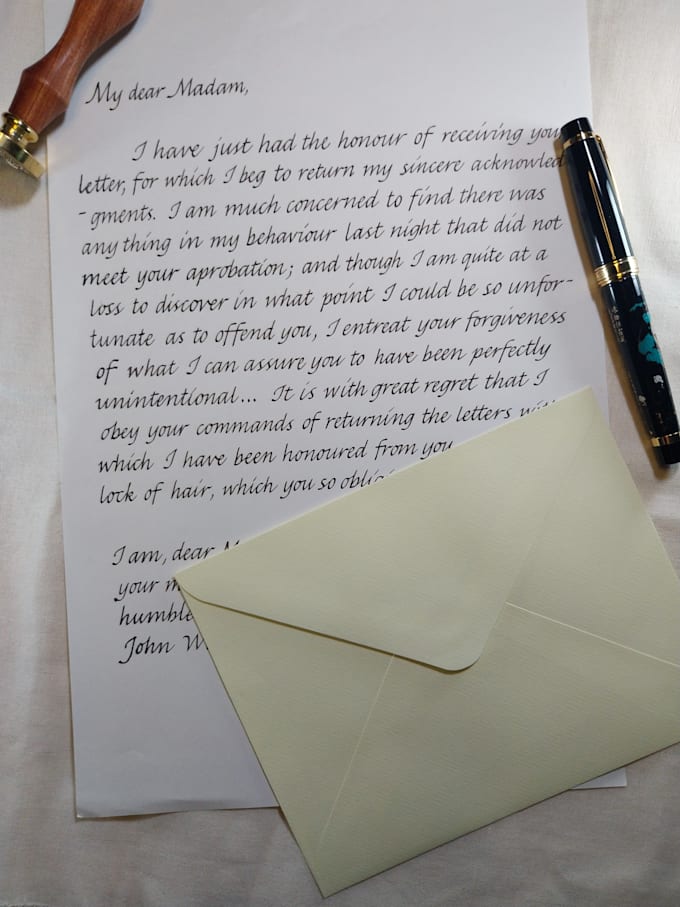 My dear Madam,
I have just had the honour of receiving your
letter, for which I beg to return my sincere acknowled
-gments. I am much concerned to find there was
any thing in my behaviour last night that did not
meet your aprobation; and though I am quite at a
loss to discover in what point I could be so unfor-
tunate as to offend you, I entreat your forgiveness
of what I can assure you to have been perfectly
unintentional... It is with great regret that I
obey your commands of returning the letters
which I have been honoured from you
lock of hair, which you so
I am, dear
your
humble
John